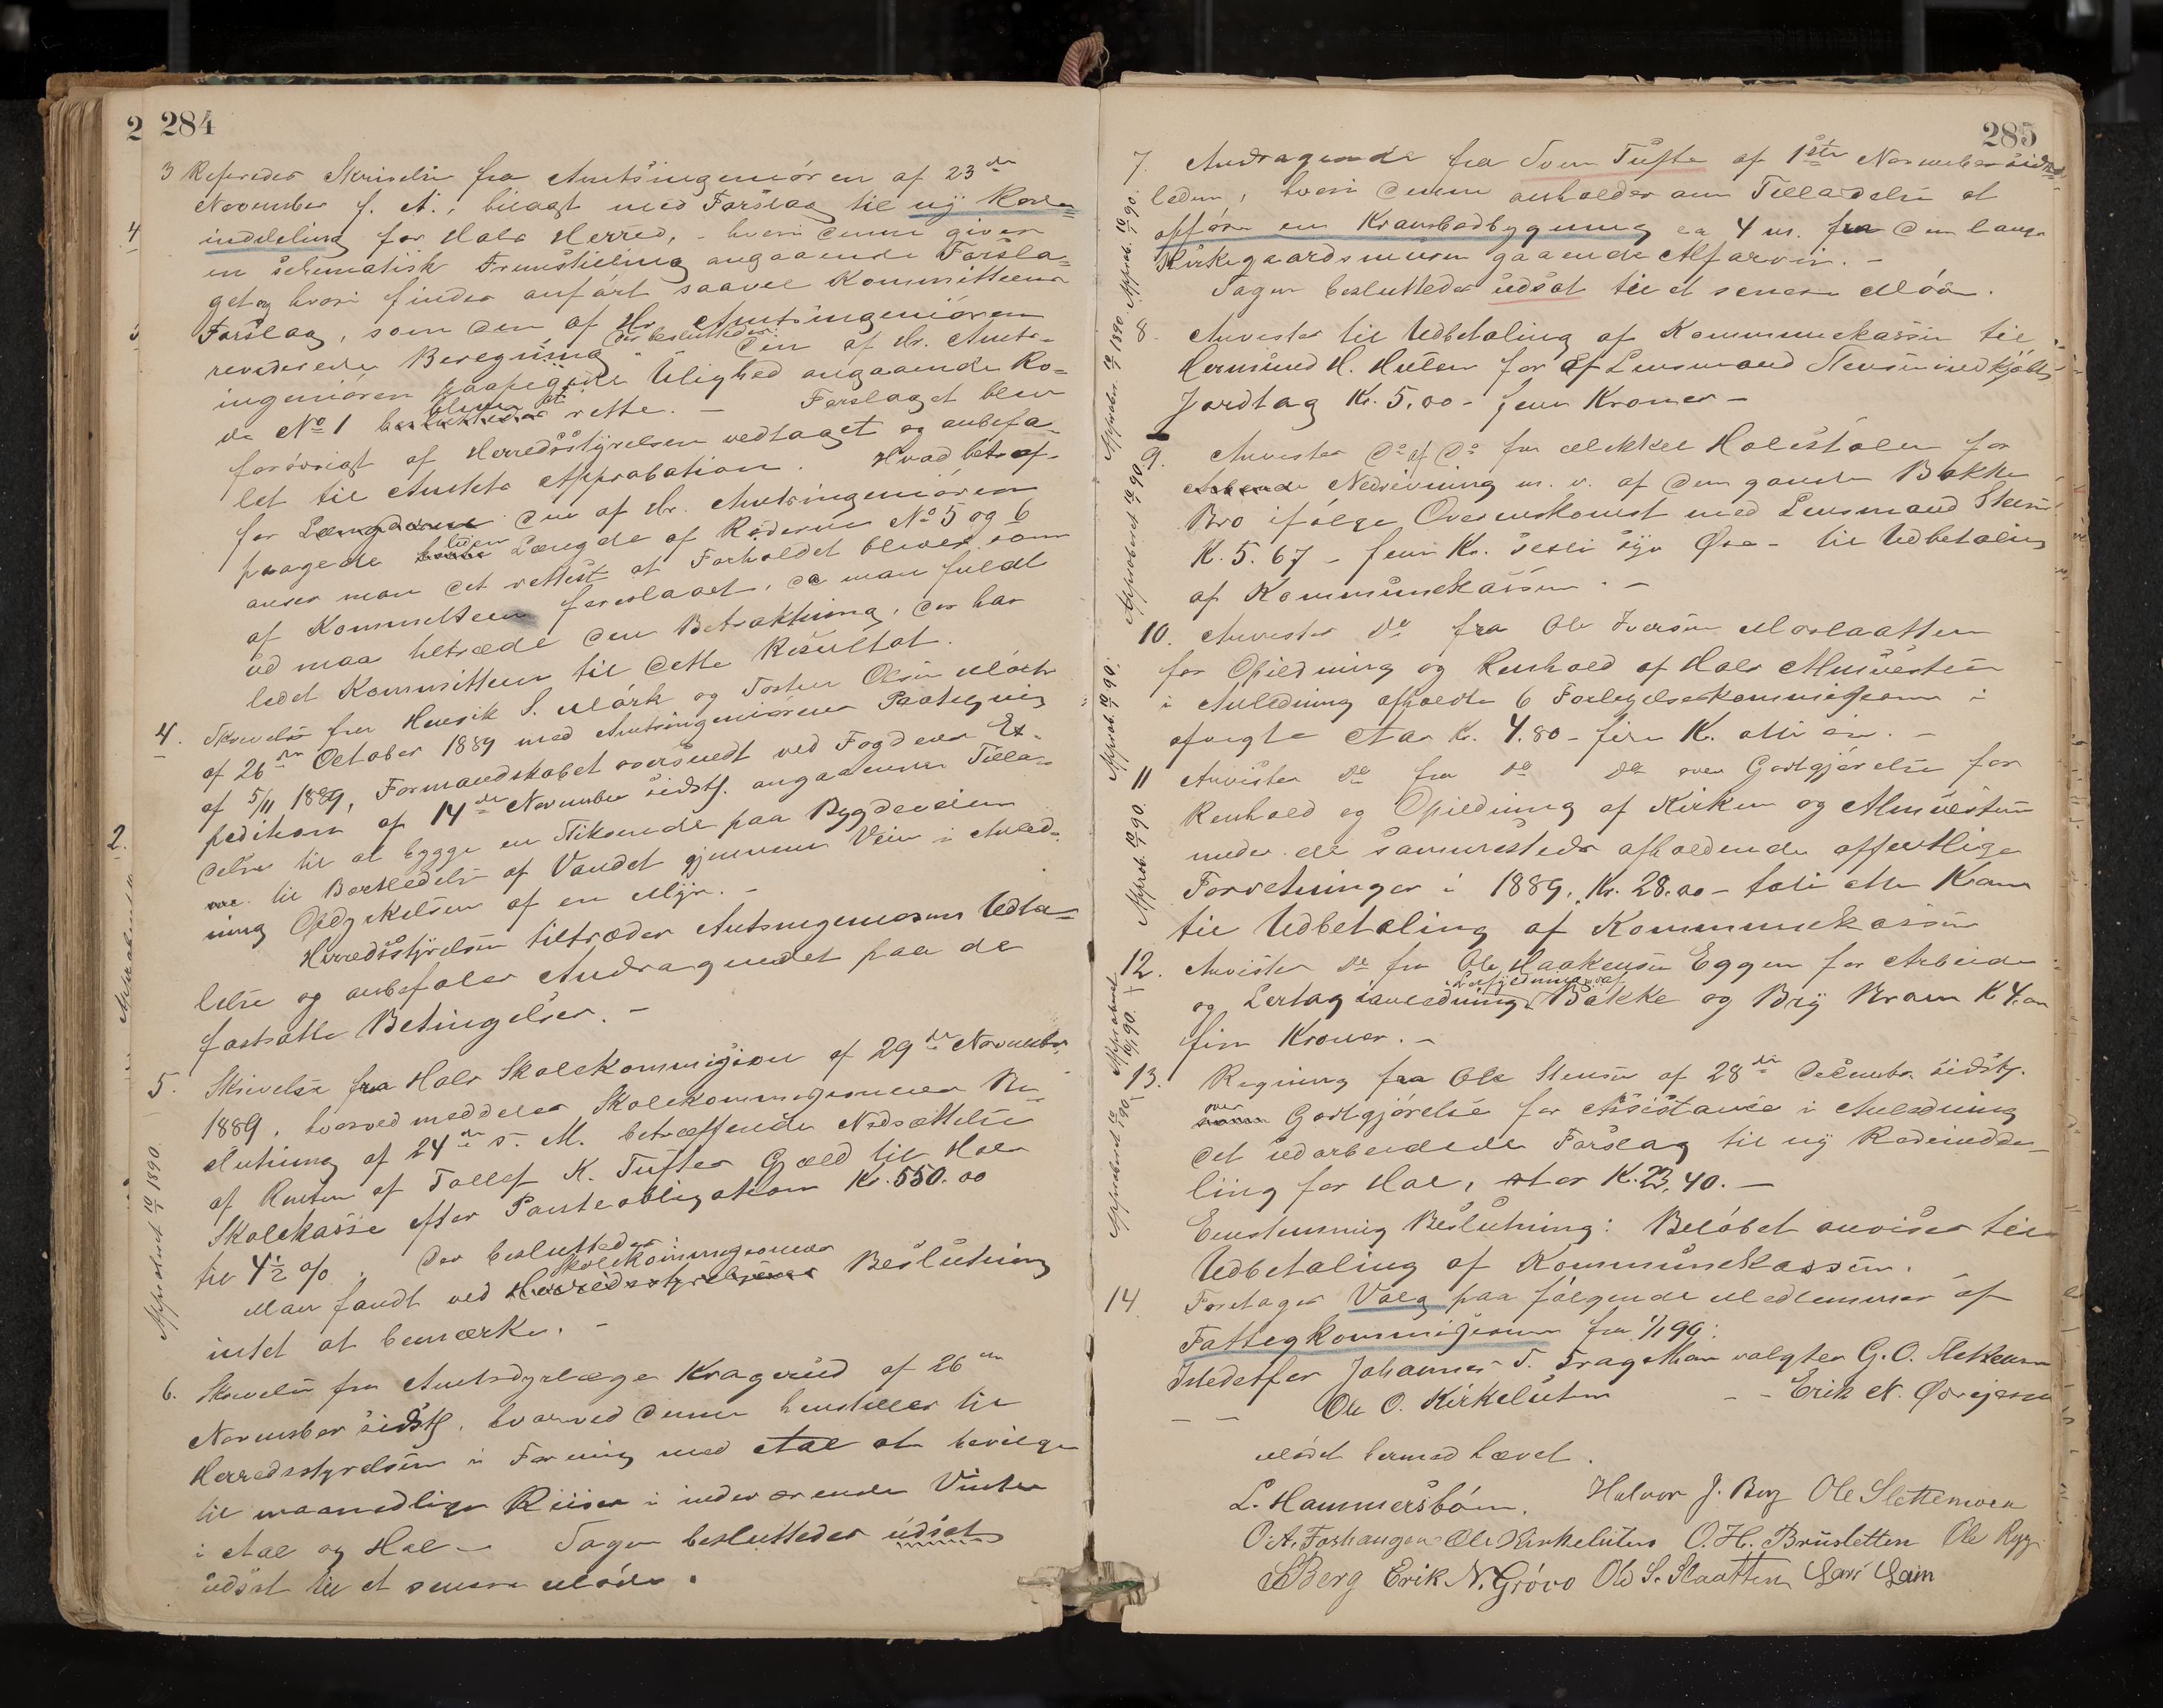 2 284
3 Refereres Skrivelse fra Amtsingeniøren af 23de
November f. A., bilagt med Forslag til ny Rode=
inddeling for Hols Herred, - hvori denne giver
en schematisk Fremstilling angaaende Forsla=
get og hvori findes anført saavel Kommitteens
Forslag, som den af Hr. Amtsingeniøren
reviderede Beregning. Der besluttedes: Den af Hr. Amts-
ingeniøren paapegede Ulighed angaaende Ro=
de No 1 blev at rette. - Forslaget blev
forøvrigt af Herredsstyrelsen vedtaget og anbefa-
let til Amtets Approbation. Hvad betræf-
fer Længderne den af Hr. Amtsingeniøren
paagede liden Længde af Roderne No 5 og 6
anser man det rettest at Forholdet bliver som
af Kommitteen foreslaaet, da man fuldt
ud maa tiltræde den Betraktning, der har
ledet Kommitteen til dette Resultat.
4. Skrivelse fra Henrik S. Mørk og Torsten Olsen Mørk
af 26de October 1889 med Amtsingeniørens Paategning
af 5/11 1889, Formandskabet oversendt ved Fogdens Ex-
pedition af 14de November sidstl. angaaende Tilla-
delse til at bygge en Stikrende paa Bygdeveien
til Bortledelse af Vandet gjennem Veien i Anled-
ning Opdyrkelsen af en Myr. -
Herredsstyrelsen tiltræder Amtsingeniørens Udta=
lelse og anbefaler Andragendet paa de
fastsatte Betingelser. -
5. Skrivelse fra Hols Skolekommission af 29de November
1889, hvorved meddeles Skolekommissionens Be-
slutning af 24de s. M. betræffende Nedsættelse
af Renten af Tollef K. Tuftes Gjæld til Hols
Skolekasse efter Panteobligation Kr. 550.00
til 4½ %. Der besluttedes:
Man fandt ved Herredsstyrelsens Skolekommissionens Beslutning
intet at bemærke. -
Approberet 10/1 1890.
6. Skrivelse fra Amtsdyrlæge Kragerud af 26de
November sidstl. hvorved denne henstiller til
Herredsstyrelsen i Forening med Aal at bevilge
til maanedlige Reiser i indeværende Vinter
i Aal og Hol - Sagen besluttedes udsat
udsat til et senere Møde.
285
7. Andragende fra Sven Tufte af 1ste November sidst-
leden, hvori denne anholder om Tilladelse at
opføre en Krambodbygning ca 4 m. fra den langs
Kirkegaardsmuren gaaende Alfarvei. -
Sagen besluttedes udsat til et senere Møde.
Approb. 10/1 90.
8. Anvistes til Udbetaling af Kommunekassen til
Hermund H. Hulen for af Lensmand Stensen indkjøbt
Jordtag Kr. 5.00 - fem Kroner -
Approber. 10/1 1890.
9. Anvistes do af do fra Mikkel Holestølen for
Arbeide Nedrivning m. v. af den gamle Bakke
Bro ifølge Overenskomst med Lensmand Stensen
K. 5.67 - fem Kr. seksti syv Øre - til Udbetaling
af Kommunekassen. -
Approberet 10/1 90.
10. Anvistes do fra Ole Iversen Moslaatten
for Opildning og Renhold af Hols Almuestue
i Anledning afholdte 6 Forligelseskommissioner i
afvigte Aar Kr. 4.80 - fire K. otti øre. -
Approb. 10/1 90.
11 Anvistes do fra do do over Godtgjørelse for
Renhold og Opildning af Kirken og Almuestuen
under de sammesteds afholdende offentlige
Forretninger i 1889. Kr. 28.00 - toti otte Kroner
til Udbetaling af Kommunekassen
Approb. 10/1 90.
12. Anvistes do fra Ole Haakensen Eggen for Arbeide
og Lertag i anledning Bakke og Bry Kroner K 4.00
fire Kroner. -
Approberet 10/1 90.
13. Regning fra Ole Stensen af 28de December sidstl.
over Godtgjørelse for Assistance i Anledning
det udarbeidede Forslag til ny Rodeindde-
ling for Hol, stor K. 23,40. -
Enstemmig Beslutning: Beløbet anvises til
Udbetaling af Kommunekassen.
Approberet 10/1 90.
14 Foretages Valg paa følgende Medlemmer af
Fattigkommissionen fra 1/1 90:
Istedetfor Johannes T. Tragethon valgtes G. O.
- - Ole O. Kirkeluten - - Erik N.
Mødet hermed hævet.
L. Hammersbøen. Halvor J. Ole Slettemoen
O. A. Forhaugen Ole Kirkeluten O. H. Brusletten Ole
Berg Erik N. Grøvo Ole S. Slaatten